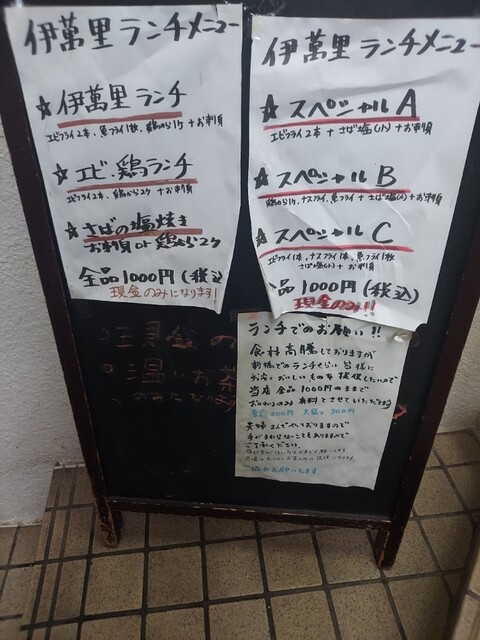 伊萬里ランチメニュー
☆伊萬里ランチ
エビフライ2本、魚フライ1枚、鶏から1ケ+お刺身
☆エビ・鶏ランチ
エビフライ2本、鶏から2ケ+お刺身
☆さばの塩焼き
お刺身 or 鶏から2ケ
全品1000円(税込
現金のみになります!
伊萬里ランチメニュー
☆スペシャルA
エビフライ2本+さば塩(小)+お刺身
☆スペシャルB
鶏から1ケ、ナスフライ、魚フライ+さば塩(小)+お刺身
☆スペシャルC
エビフライ1本、ナスフライ1本、魚フライ1枚
さば塩(小)+お刺身
全品1000円(税込)
現金のみ!!
ランチでのお願い!!
食材高騰しておりますが
新橋でのランチぐらい皆様に
お安くおいしいものを提供したいので
当店全品1000円のままで
おかわりのみ有料とさせていただきます
普通200円 大盛り300円
夫婦2人でやっておりますので
手がまわらないこともありますので
ご了承ください。
協力お願いします
現金の
温かいお茶
のみになります